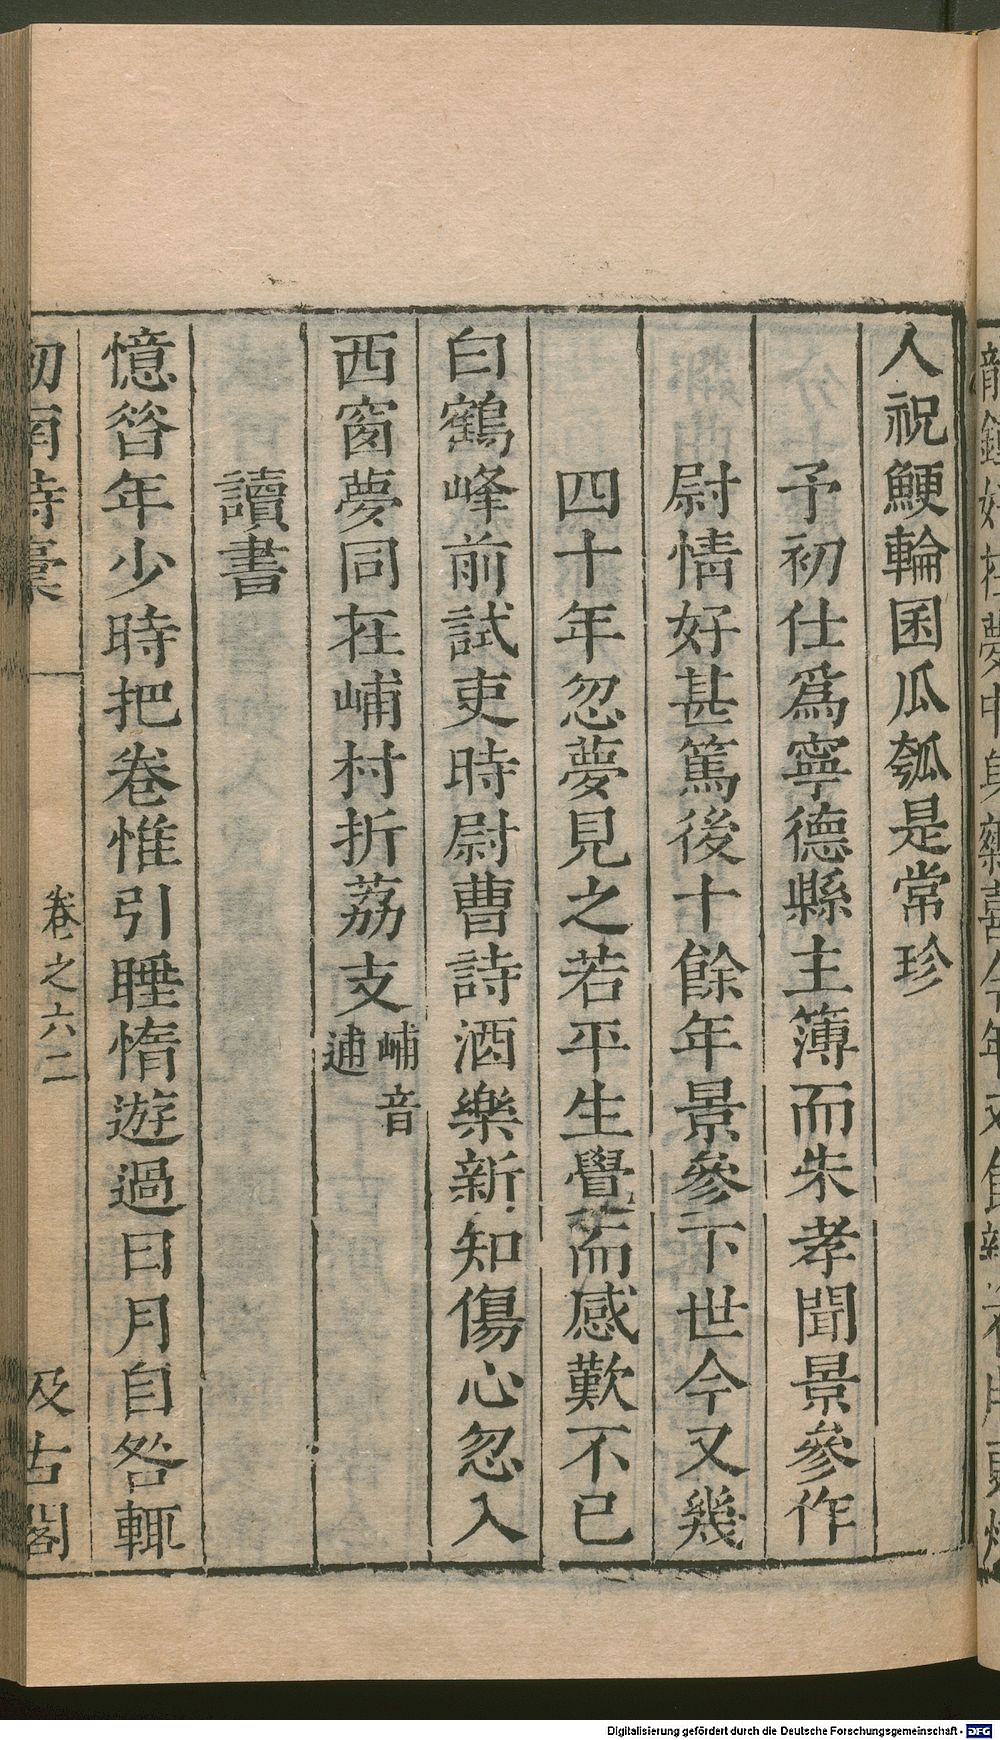 人祝鯁輪囷瓜瓠是常珍
予初仕爲寧德縣主簿而朱孝聞景參作
尉情好甚篤後十餘年景參下世今又幾
四十年忽夢見之若平生覺而感歎不已
白鶴峰前試吏時尉曹詩酒樂新知傷心忽入
西窗夢同在峬村折荔支峬音逋
讀書
憶昝年少時把卷惟引睡惰遊過日月自咎輒
劒南詩稾
卷之六二
汲古閣
Digitalisierung gefördert durch die Deutsche Forschungsgemeinschaft - DFG